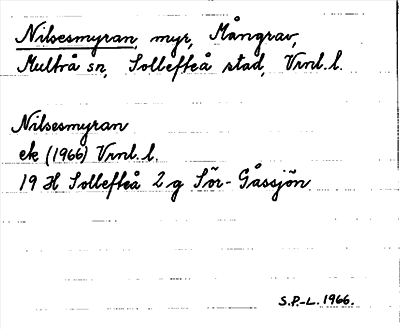 Nilsesmyran, myr, Mångrav,
Multrå sn, Sollefteå stad, Vrnl. l.
Nilsesmyran
ek (1966) Vrnl. l.
19 H Sollefteå 2 g Sör-Gåssjön
S.P.-L. 1966.